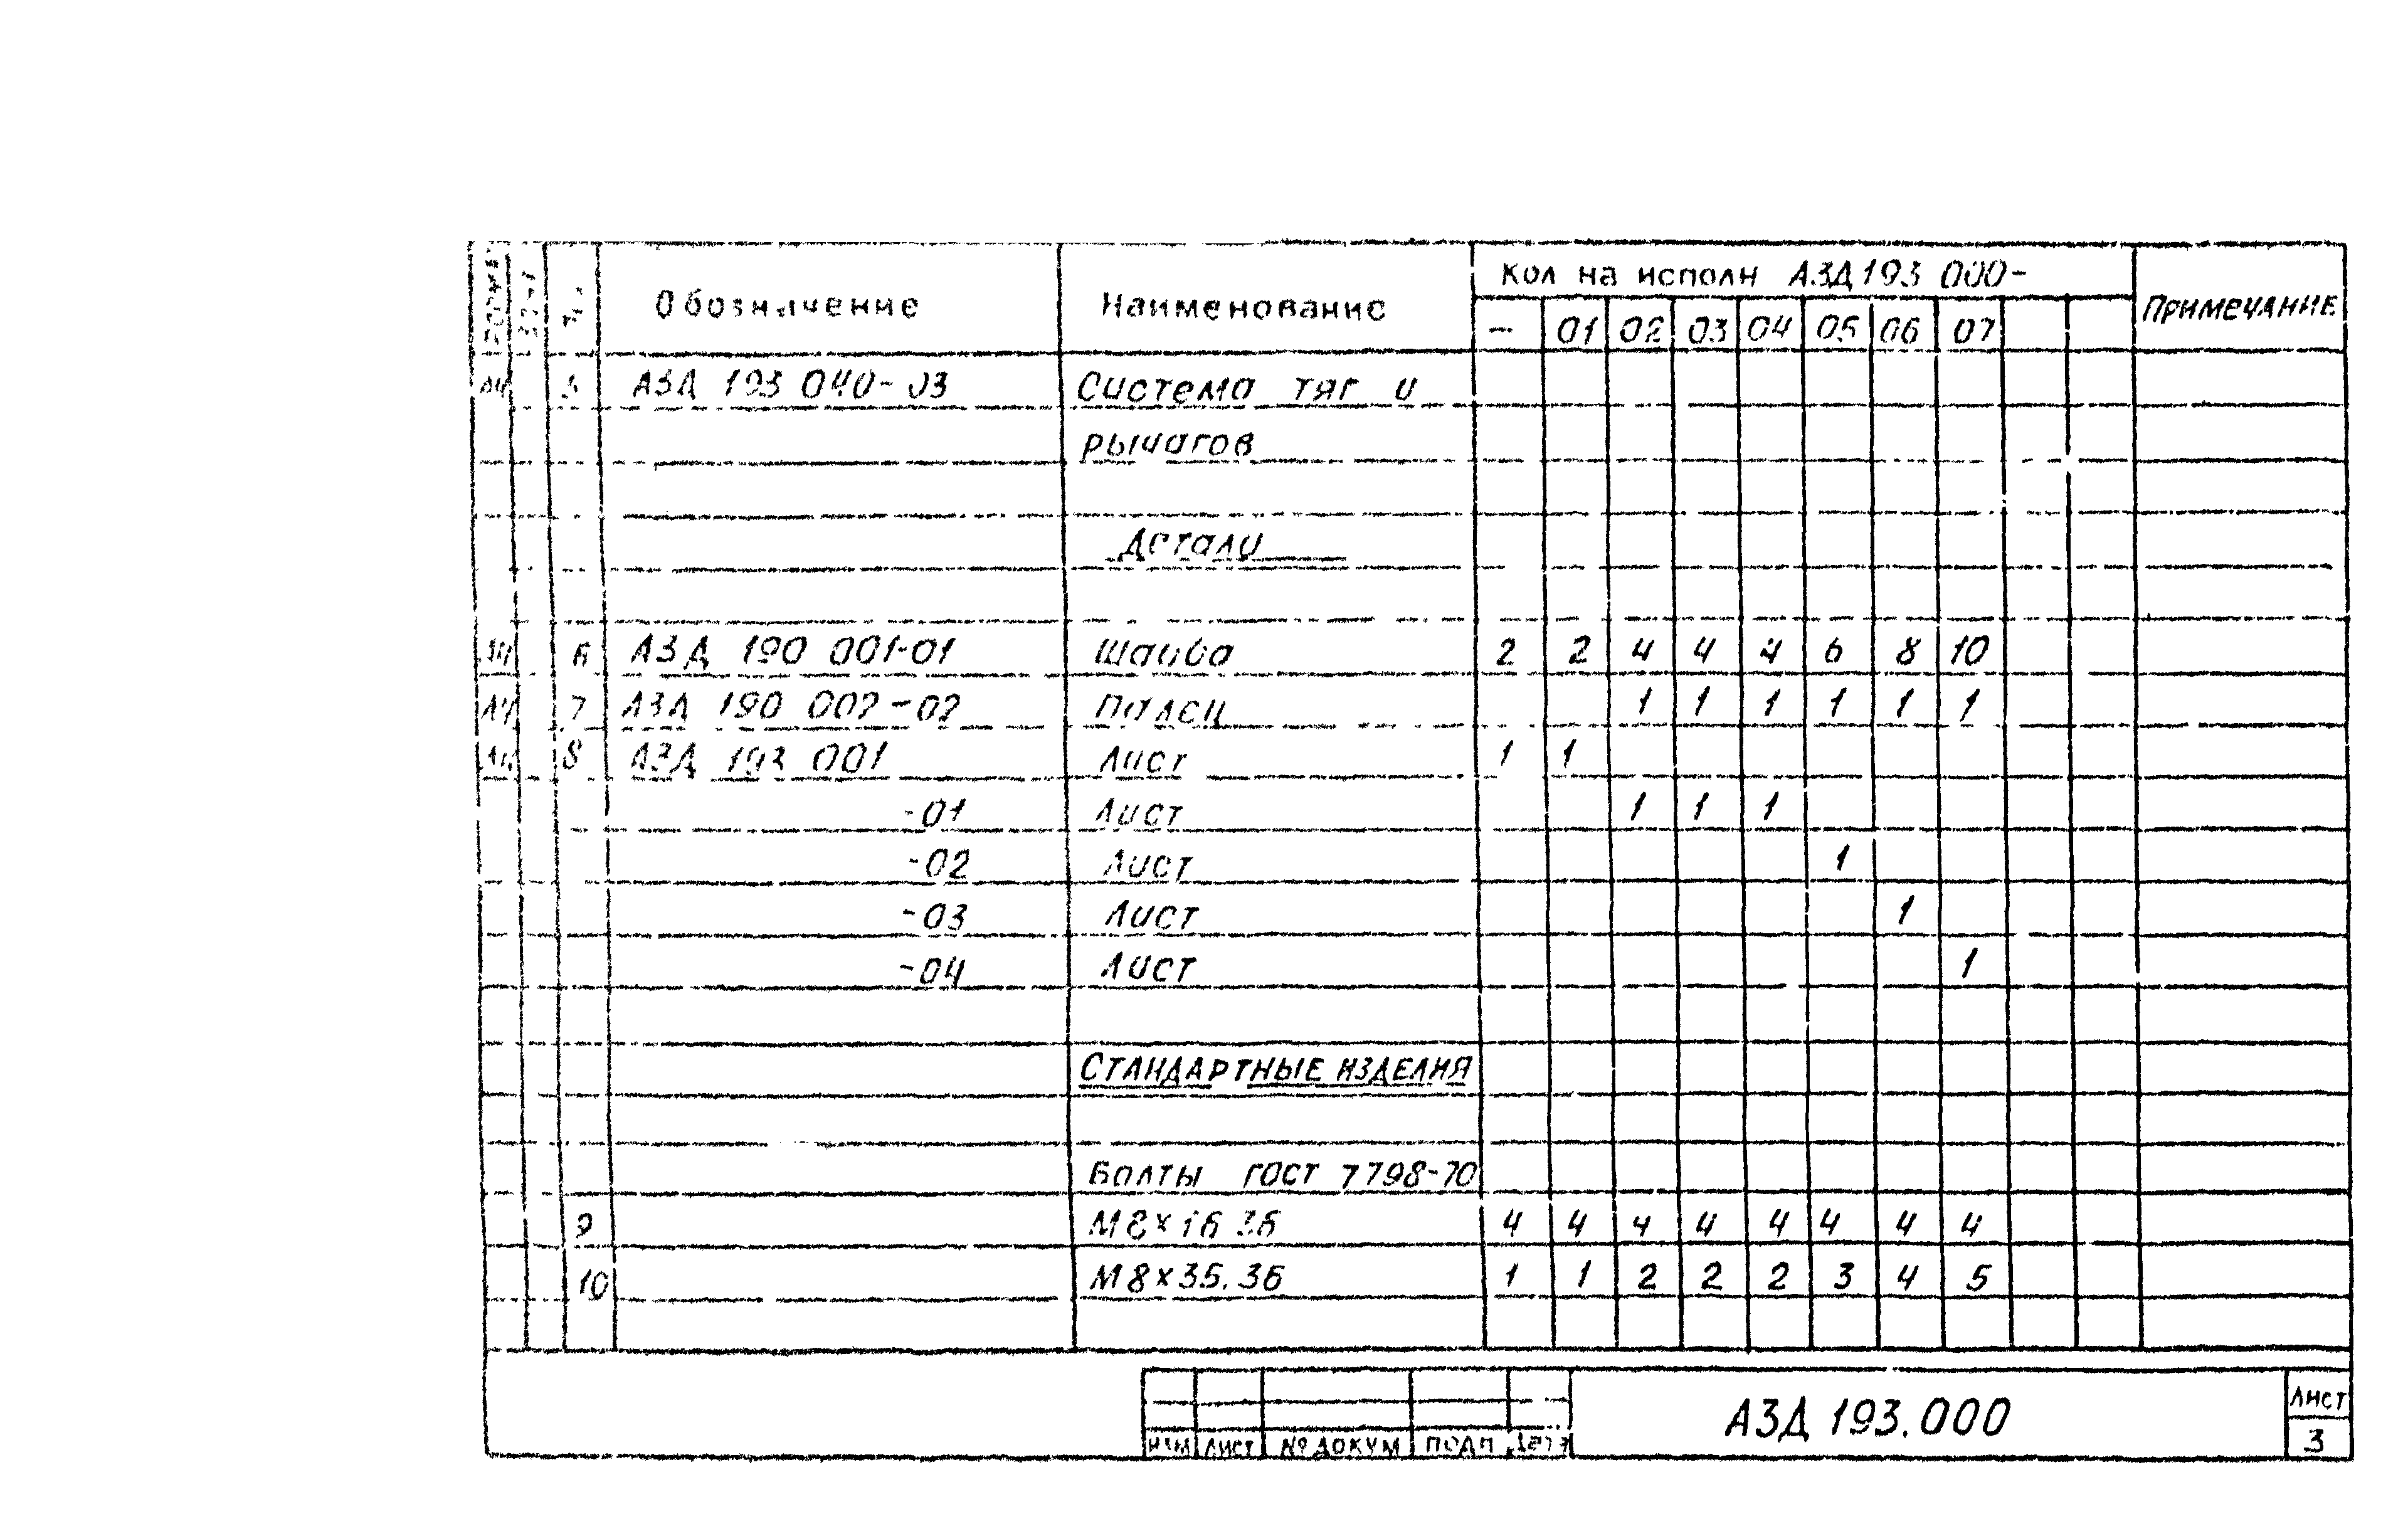 Формат Зона Поз. Обозначение Наименование Кол на исполн АЗД193 000- Примечание
— 01 02 03 04 05 06 07
А4 5 АЗД 193 040-03 Система тяг и
рычагов
Детали
А4 6 АЗД 190 001-01 Шайба 2 2 4 4 4 6 8 10
А4 7 АЗД 190 002-02 Палец 1 1 1 1 1 1
А4 8 АЗД 193 001 Лист 1 1
-01 Лист 1 1 1
-02 Лист 1
-03 Лист 1
-04 Лист 1
Стандартные изделия
Болты ГОСТ 7798-70
9 М8×16 36 4 4 4 4 4 4 4 4
10 М8×35.36 1 1 2 2 2 3 4 5
Изм Лист № докум Подп Дата АЗД 193.000 Лист
3